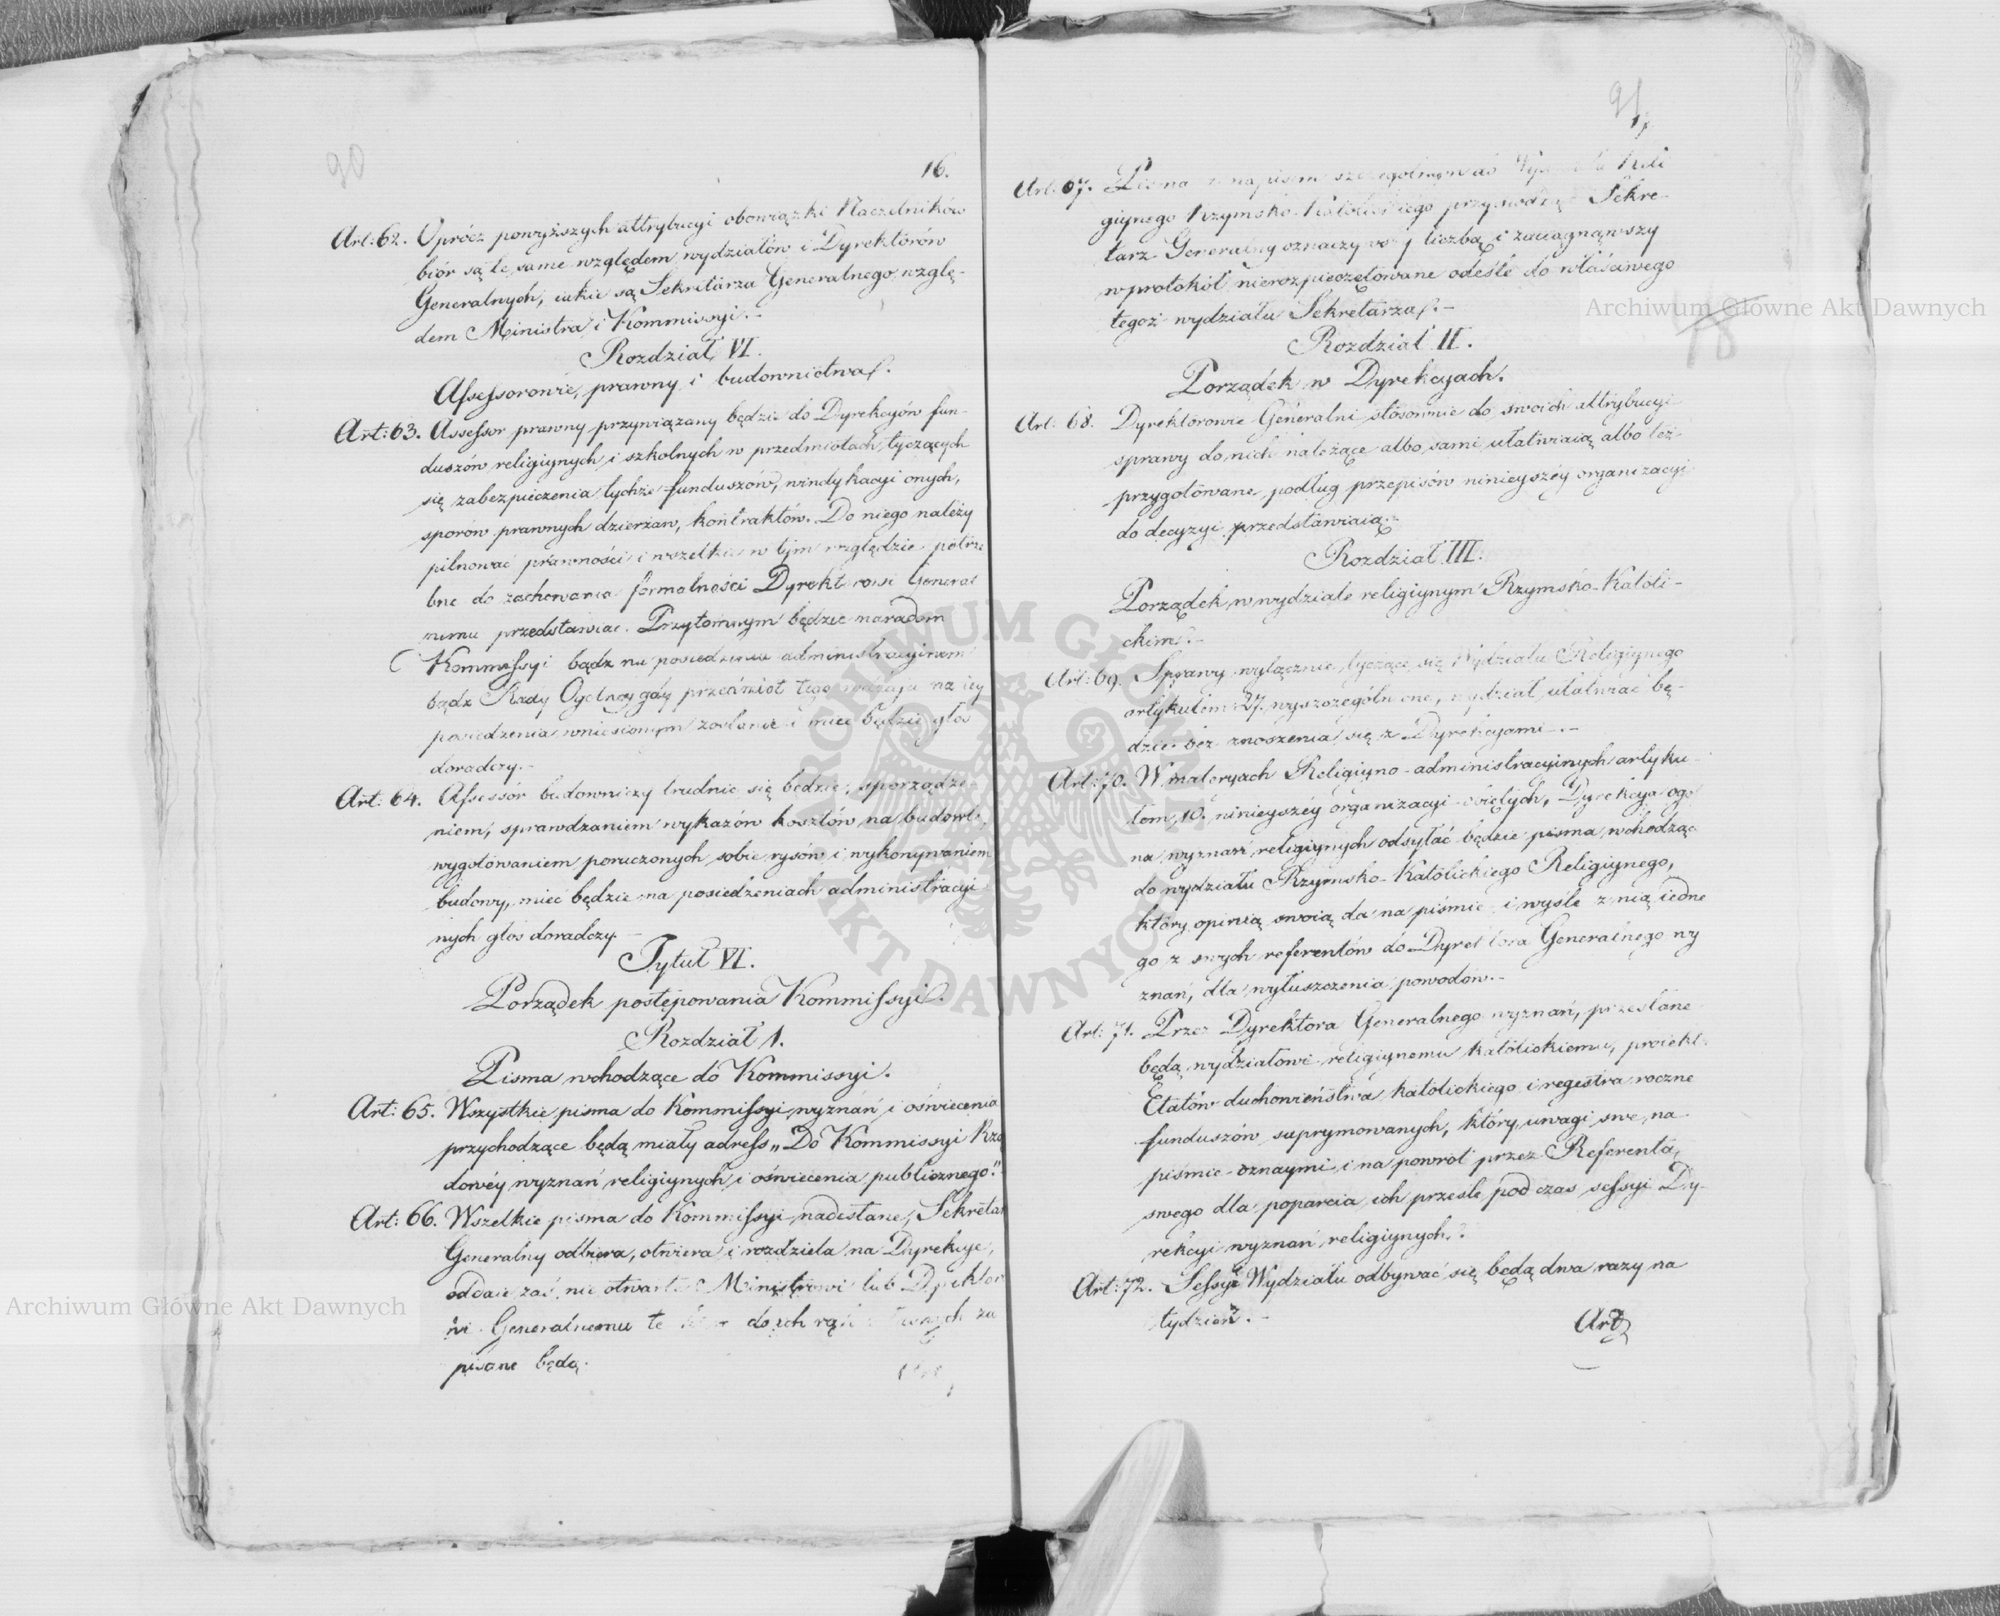 90
16.
Art: 62. Oprócz powyższych attrybucyi obowiązki Naczelników
biór są te same względem wydziałów i Dyrektorów
Generalnych, iakie są Sekretarza Generalnego wzglę-
dem Ministra i Kommissyi.-
Rozdział VI.
Assessorowie, prawny i budownictwa.
Art: 63. Assessor prawny przywiązany będzie do Dyrekcyów fun-
duszów religiynych i szkolnych w przedmiotach tyczących
się zabezpieczenia tychże funduszów, windykacyi onych,
sporów prawnych dzierżaw, kontraktów. Do niego należy
pilnować prawności i wszelkie w tym względzie potrze
bne do zachowania formalności Dyrektorowi General
nemu przedstawiać. Przytomnym będzie naradom
Kommissyi bądź na posiedzeniu administracyinem
bądź Rady Ogolney gdy przedmiot tego na iey
posiedzenia wniesionym zostanie i mieć będzie głos
doradczy.-
Art: 64. Assessór budowniczy trudnić się będzie, sporządze-
niem, sprawdzaniem wykazów kosztów na budowle,
wygotowaniem poruczonych sobie rysów i wykonywaniem
budowy, mieć będzie na posiedzeniach administracyi
nych głos doradczy.-
Tytuł VI.
Porządek postępowania Kommissyi.
Rozdział 1.
Pisma wchodzące do Kommissyi.
Art: 65. Wszystkie pisma do Kommissyi wyznań i oświecenia
przychodzące będą miały adress „Do Kommissyi Rzą
dowéy wyznań religiynych i oświecenia publicznego."
Art: 66. Wszelkie pisma do Kommissyi nadesłane, Sekretar
Generalny odbiera, otwiera i rozdziela na Dyrekcye,
oddaie zaś nie otwarte Ministrowi lub Dyrektor
wi Generalnemu te do ich rąk za
pisane będą.
Art
91
17
Art: 67. Pisma z napisem szczegolnym do Wydziału Reli
giynego Rzymsko-Katolickiego przychodzące Sekre-
tarz Generalny oznaczywszy liczbą i zaciągnąwszy
w protokół nierozpieczętowane odeśle do właściwego
tegoż wydziału Sekretarza.-
Rozdział II.
Porządek w Dyrekcyach.
Art: 68. Dyrektorowie Generalni stosownie do swoich attrybucyi
sprawy do nich należące albo sami ułatwiaią albo też
przygotowane podług przepisów ninieyszéy organizacyi
do decyzyi przedstawiaią.-
Rozdział III.
Porządek w wydziale religiynym Rzymsko-Katoli-
ckim.-
Art: 69. Sprawy wyłącznie tyczące się Wydziału Religiynego
artykułem 27. wyszczególnione, wydział ułatwiać bę-
dzie bez znoszenia się z Dyrekcyami.-
Art: 70. W materyach Religiyno-administracyinych artyku-
łem 10. ninieyszéy organizacyi obiętych, Dyrekcya ogó
na wyznań religiynych odsyłać będzie pisma wchodzące
do wydziału Rzymsko-Katolickiego Religiynego,
który opinią swoią da na piśmie i wyśle z nią iedne
go z swych referentów do Dyrektora Generalnego wy
znań, dla wyłuszczenia powodów.-
Art: 71. Przez Dyrektora Generalnego wyznań, przesłane
będą wydziałowi religiynemu katolickiemu, proiekt
Etatów duchowieństwa katolickiego i regestra roczne
funduszów suprymowanych, który uwagi swe na
piśmie oznaymi i na powrót przez Referenta
swego dla poparcia ich prześle podczas sessyi Dy-
rekcyi wyznań religiynych.
Art: 72. Sessye Wydziału odbywać się będą dwa razy na
tydzień.-
Art
Archiwum Główne Akt Dawnych
Archiwum Główne Akt Dawnych
ARCHIWUM GŁÓWNE
AKT DAWNYCH